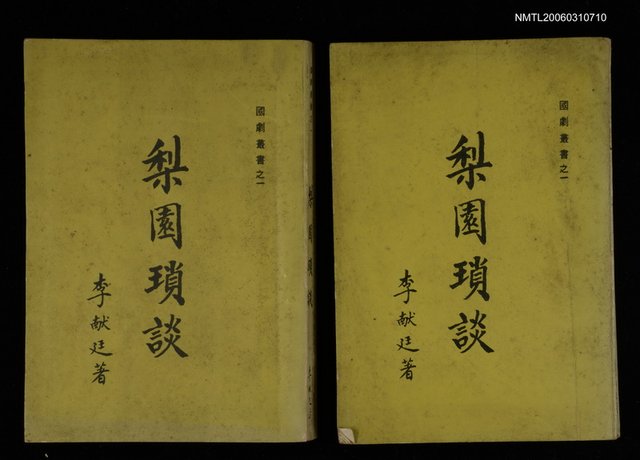 NMTL20060310710
國劇叢書之一
梨園瑣談
李献廷著
梨園瑣談
國劇叢書之一
梨園瑣談
李献廷著